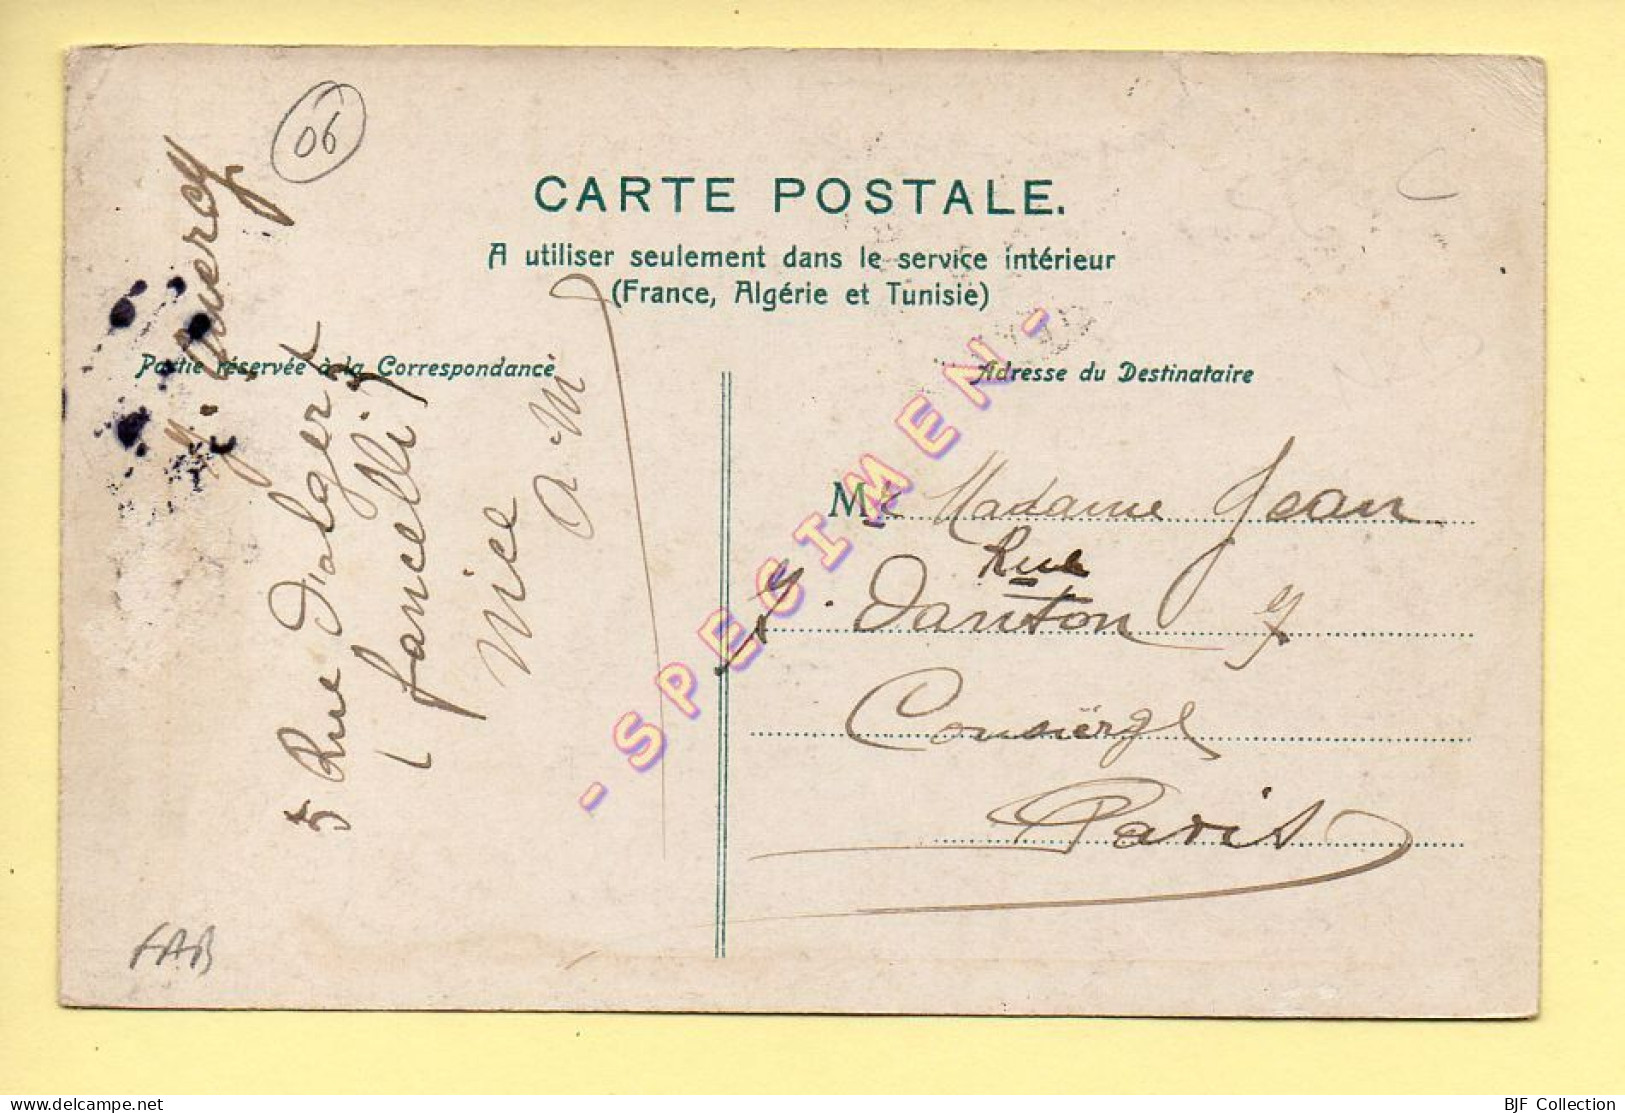 06
CARTE POSTALE.
A utiliser seulement dans le service intérieur
(France, Algérie et Tunisie)
Partie réservée à la Correspondance
Adresse du Destinataire
J. Quercy
5 Rue d'alger
(fancelli)
Nice
a. M
M Madame Jean
Rue
Danton 7
Concièrge
Paris
FAB
- SPECIMEN -
BJF Collection